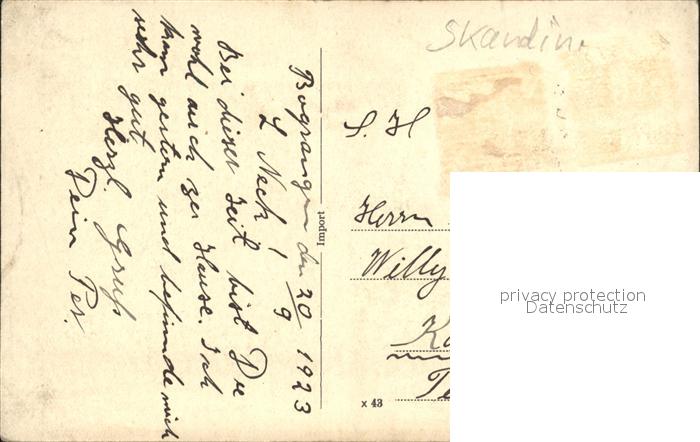 Skandin.
Bograngen den 20/9 1923
L. Neck!
Bei dieser Zeit bist Du
wohl auch zu Hause. Ich
kam gestern und befinde mich
sehr gut
Herzl. Gruß
Dein Per.
Import
S. H
Herrn
Willy
x 43
privacy protection
Datenschutz